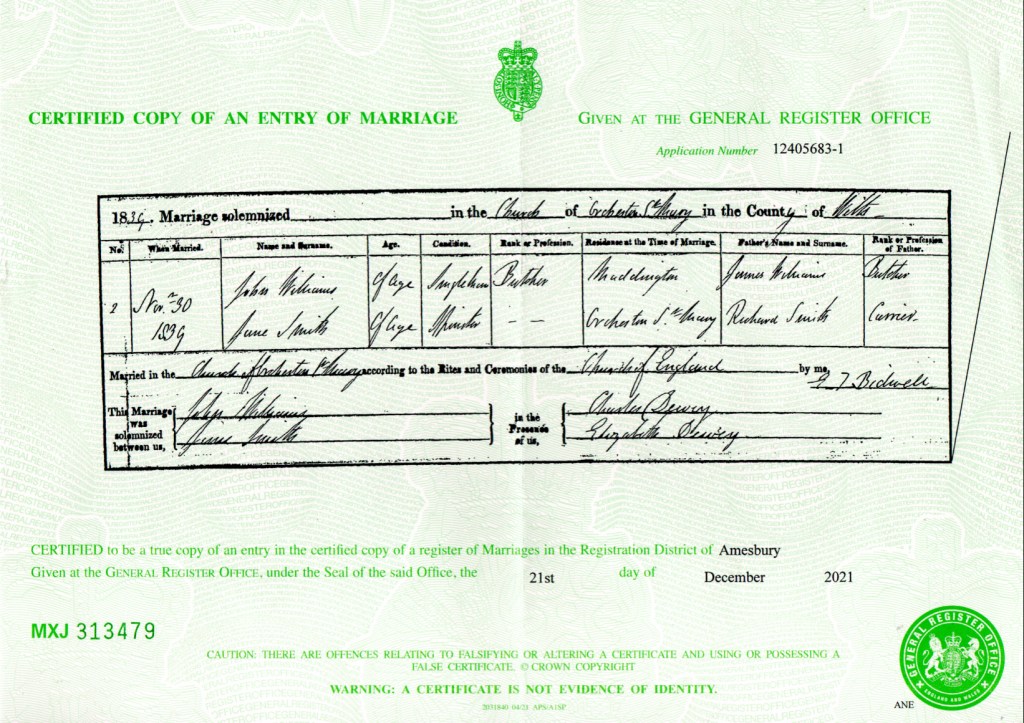 CERTIFIED COPY OF AN ENTRY OF MARRIAGE
GIVEN AT THE GENERAL REGISTER OFFICE
Application Number 12405683-1
1839. Marriage solemnized in the Church of Orcheston St Mary in the County of Wilts
No. When Married. Name and Surname. Age. Condition. Rank or Profession. Residence at the Time of Marriage. Father's Name and Surname. Rank or Profession of Father.
2 Novr 30 1839
John Williams Of Age Butcher Maddington James Williams Butcher
Jane Smith Of Age Spinster — — Orcheston St Mary Richard Smith Carrier
Married in the Church of Orcheston St Mary according to the Rites and Ceremonies of the Church of England by me,
Bidwell
This Marriage was solemnized between us, John Williams Jane Smith
in the Presence of us, Charles Dewey Elizabeth Dewey
CERTIFIED to be a true copy of an entry in the certified copy of a register of Marriages in the Registration District of Amesbury
Given at the GENERAL REGISTER OFFICE, under the Seal of the said Office, the 21st day of December 2021
MXJ 313479
CAUTION: THERE ARE OFFENCES RELATING TO FALSIFYING OR ALTERING A CERTIFICATE AND USING OR POSSESSING A
FALSE CERTIFICATE. © CROWN COPYRIGHT
WARNING: A CERTIFICATE IS NOT EVIDENCE OF IDENTITY.
GENERAL REGISTER OFFICE
ENGLAND AND WALES
ANE